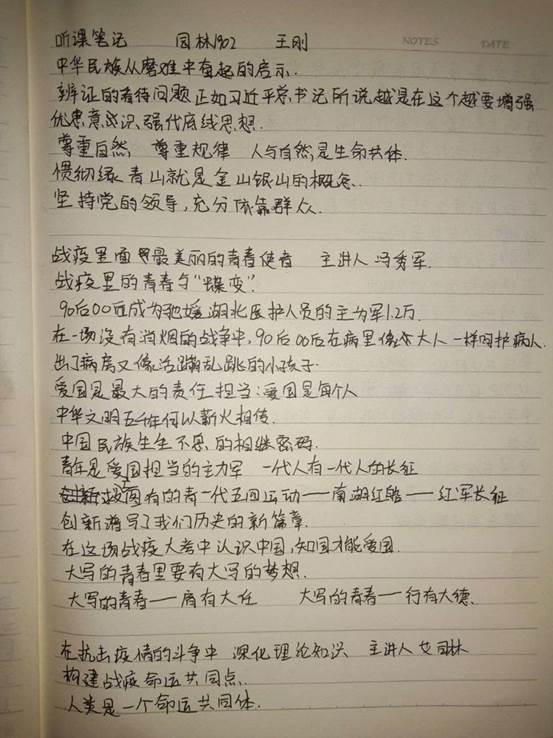 听课笔记 园林1902 王刚
NOTES DATE
中华民族从磨难中奋起的启示.
辨证的看待问题正如习近平总书记所说越是在这个越要增强
忧患意识,强代底线思想.
尊重自然 尊重规律 人与自然是生命共体.
惯彻绿青山就是金山银山的概念.
坚持党的领导,充分依靠群众.
战疫里面最美丽的青春使者 主讲人 冯秀军.
战疫里的青春与“蝶变”.
90后00后成为驰援湖北医护人员的主力军1.2万.
在一场没有消烟的战争中,90后00后在病里像大人一样呵护病人.
出了病房又像活蹦乱跳的小孩子.
爱国是最大的责任担当:爱国是每个人
中华文明五千年何以薪火相传.
中国民族生生不息的相继密码.
青年是爱国担当的主力军 一代人有一代人的长征
有的青一代五四运动——南湖红船——红军长征
创新谱写了我们历史的新篇章.
在这场战疫大考中认识中国,知国才能爱国.
大写的青春里要有大写的梦想.
大写的青春——肩有大任 大写的青春——行有大德.
在抗击疫情的斗争中 深化理论知识 主讲人
构建战疫命运共同点.
人类是一个命运共同体.